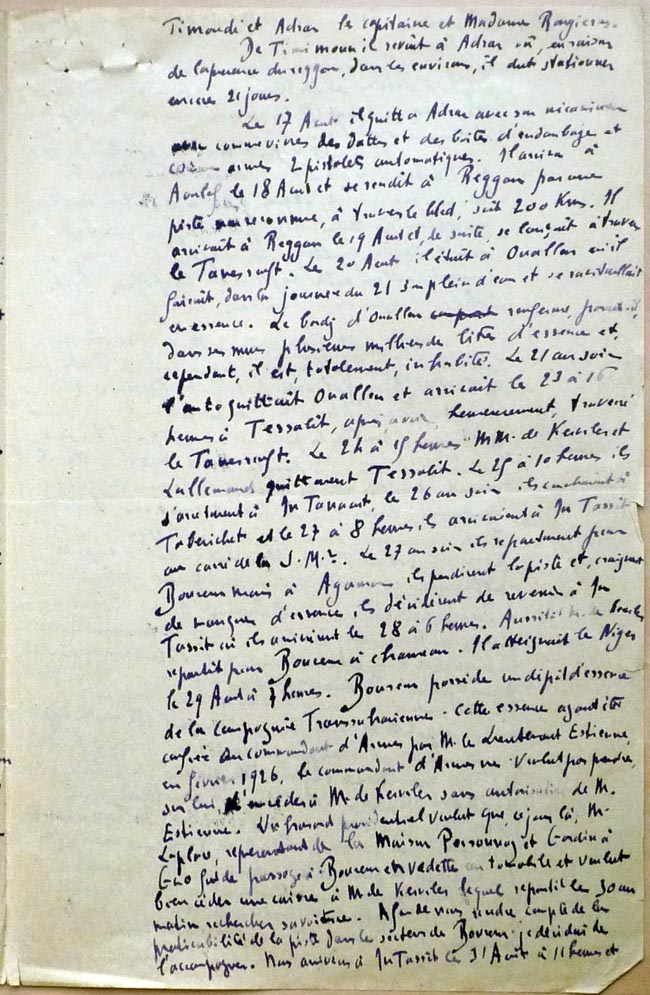 Timoudi et Adrar le capitaine et Madame
De Timimoun il revint à Adrar où, en raison
de la présence du reggan, dans les environs, il dut stationner
encore 21 jours.
Le 17 Août il quitta Adrar avec son mécanicien
comme vivres des dattes et des boites d'endaubage et
comme armes 2 pistolets automatiques. Il arriva à
Aoulef le 18 Août et se rendit à Reggan par une
piste non reconnue, à travers le bled, soit 200 Kms. Il
arrivait à Reggan le 19 Août et, de suite, se lançait à travers
le Tanezrouft. Le 20 Août il était à Ouallen où il
faisait, dans la journée du 21 son plein d'eau et se ravitaillait
en essence. Le bordj d'Ouallen renferme,
dans ses murs plusieurs milliers de litres d'essence et,
cependant, il est, totalement, inhabité. Le 21 au soir
l'auto quittait Ouallen et arrivait le 23 à 16
heures à Tessalit, après avoir, heureusement, traversé
le Tanezrouft. Le 24 à 15 heures MM. de Kersler et
Lallemand quittèrent Tessalit. Le 25 à 10 heures ils
s'arrêtèrent à In Tanaout, le 26 au soir ils couchaient à
Taberichet et le 27 à 8 heures ils arrivaient à In Tassit
au carré de la S.M. Le 27 au soir ils repartirent pour
Bourem mais à Agamor ils perdirent la piste et, craignant
de manquer d'essence, ils décidèrent de revenir à In
Tassit où ils arrivèrent le 28 à 6 heures. Aussitôt M. de Kersler
repartit pour Bourem à chameau. Il atteignait le Niger
le 29 Août à 7 heures. Bourem possède un dépôt d'essence
de la Compagnie Transsaharienne. Cette essence ayant été
confiée au commandant d'Armes par M. le Lieutenant Estienne,
en février 1926, le commandant d'Armes ne voulut pas prendre,
sur lui, d'en céder à M. de Kersler sans autorisation de M.
Estienne. Un hasard providentiel voulut que, ce jour là, M.
Leplou, représentant de la Maison Personnaz et Gardin à
Gao fut de passage à Bourem en vedette automobile et voulut
bien céder une caisse à M. de Kersler lequel repartit le 30 au
matin rechercher sa voiture. Afin de nous rendre compte de la
praticabilité de la piste dans le secteur de Bourem je décidai de
l'accompagner. Nous arrivons à In Tassit le 31 Août à 11 heures et